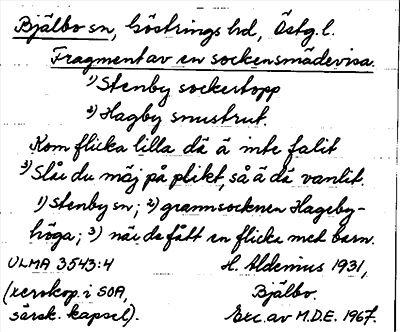 Bjälbo sn, Göstrings hd, Östg. l.
Fragment av en sockensmädevisa.
1) Stenby sockertopp
2) Hagby snustrut.
Kom flicka lilla dä ä inte falit
3) Slår du mäj på plikt, så ä dä vanlit.
1) Stenby sn; 2) grannsocknen Hageby-
höga; 3) när de fått en flicka med barn.
ULMA 3543:4 H. Aldenius 1931,
(xerokop. i SOA, Bjälbo.
särsk. kapsel). Exc. av M.D.E. 1967.